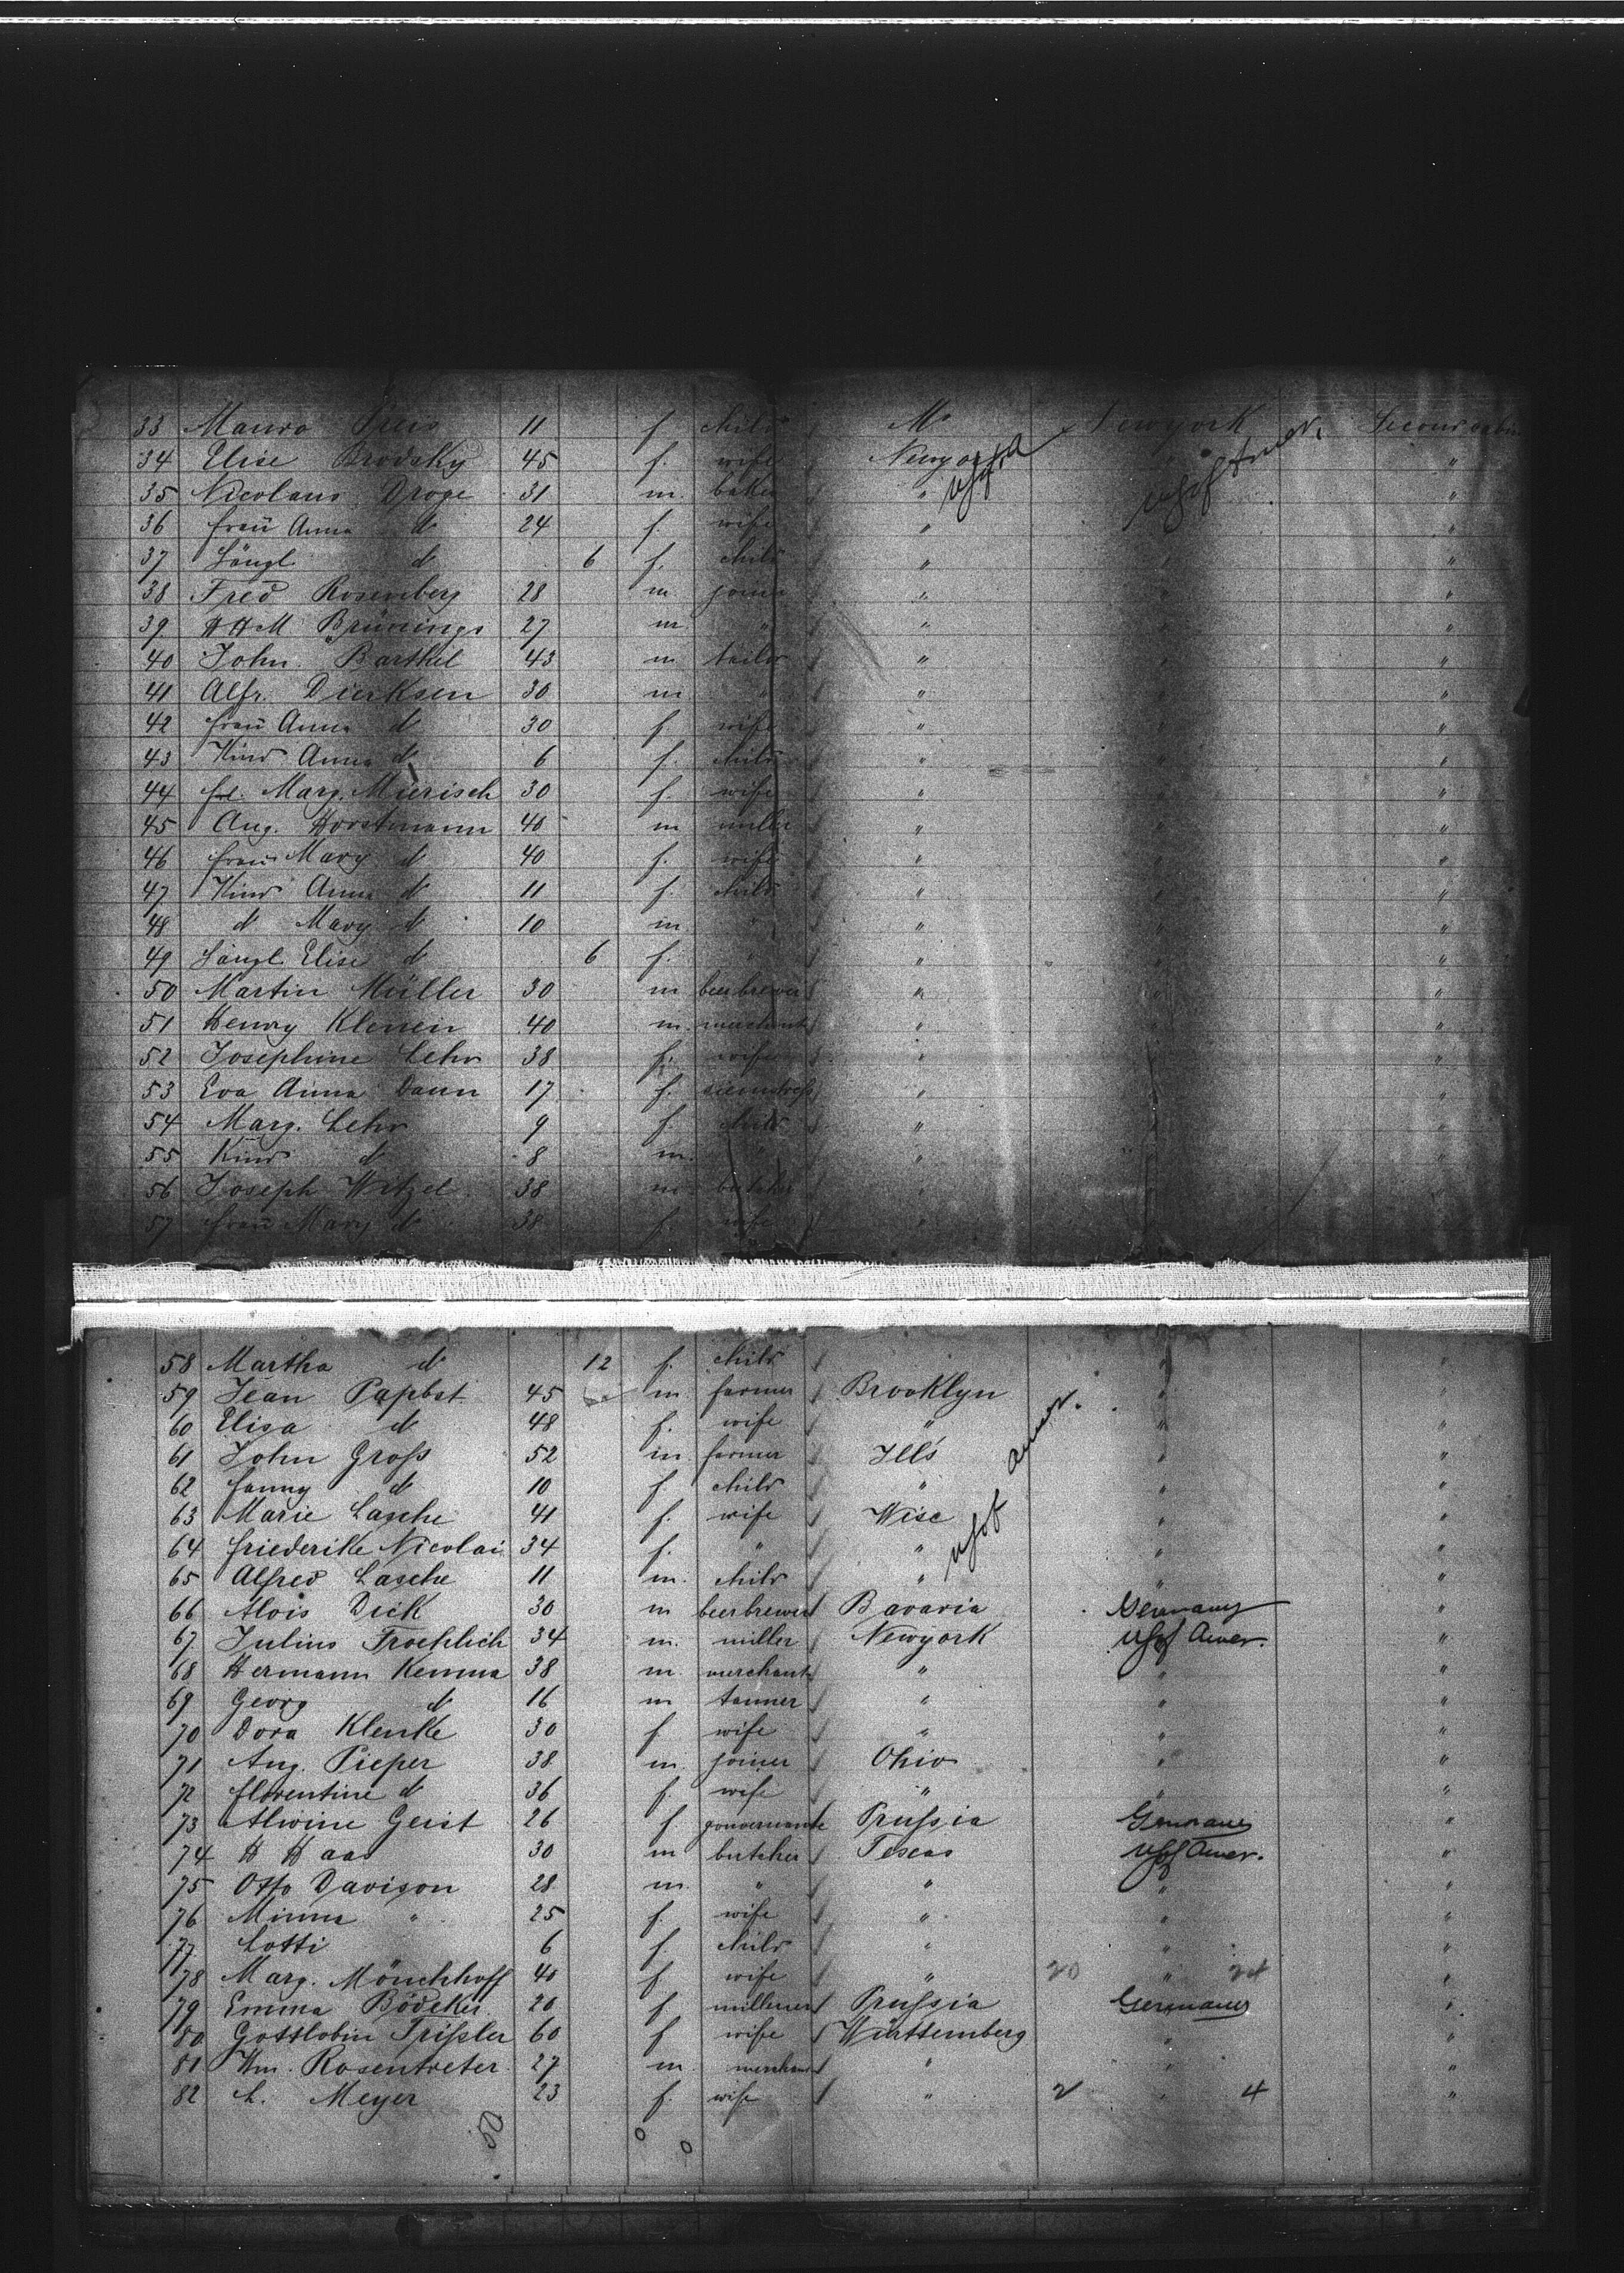 33 Maura Preis 11 f child Mo Newyork Second cabin
34 Elise Brodsky 45 f. wife Newyork " "
35 Nicolaus Droge 31 m. baker " USof Amer. "
36 frau Anna d 24 f. wife " " "
37 Sängl. d 6 f. child " " "
38 Fred Rosenberg 28 m joiner " " "
39 HHM Brünings 27 m. " " " "
40 John. Barthel 43 m tailor " " "
41 Alfr. Dierksen 30 m " " " "
42 frau Anna d 30 f wife " " "
43 Kind Anna d 6 f. child " " "
44 fr. Marg. Mierisch 30 f. wife " " "
45 Aug. Horstmann 40 m miller " " "
46 frau Mary d 40 f. wife " " "
47 Kind Anna d 11 f. child " " "
48 d Mary d 10 m " " " "
49 Sängl. Elise d 6 f. " " " "
50 Martin Müller 30 m beerbrewer " " "
51 Henry Klenein 40 m. merchant " " "
52 Josephine Lehr 38 f. wife " " "
53 Eva Anna Daun 17 f. " " "
54 Marg. Lehr 9 f. child " " "
55 Kind d 8 m. " " " "
56 Joseph Witzel 38 m butcher " " "
57 frau Mary d 38 f. wife " " "
58 Martha d 12 f. child " "
59 Jean Papbst 45 m farmer Brooklyn " "
60 Elisa d 48 f. wife " " "
61 John Gross 52 m farmer Ills " "
62 fanny d 10 f child " USof Amer. " "
63 Marie Lasche 41 f. wife Wisc " "
64 friederike Nicolai 34 f. " " " "
65 Alfred Lasche 11 m. child " " "
66 Alois Dick 30 m beerbrewer Bavaria Germany "
67 Julius Froehlich 34 m. miller Newyork USof Amer. "
68 Hermann Kemna 38 m. merchant " " "
69 Georg d 16 m tanner " " "
70 Dora Klenke 30 f wife " " "
71 Aug. Pieper 38 m joiner Ohio " "
72 florentine d 36 f. wife " " "
73 Alwine Geist 26 f gouvernante Prussia Germany "
74 H Haas 30 m butcher Texas USof Amer. "
75 Otto Davison 28 m. " " " "
76 Minna " 25 f. wife " " "
77 Lotti 6 f. child " " "
78 Marg. Mönchhoff 40 f wife " 20 " 24 "
79 Emma Bödeker 20 f milliner Prussia Germany "
80 Gottlobin Trissler 60 f wife Württemberg " "
81 Wm. Rosentreter 27 m merchant " " "
82 L. Meyer 23 f. wife " 2 " 4 "
50 0 0